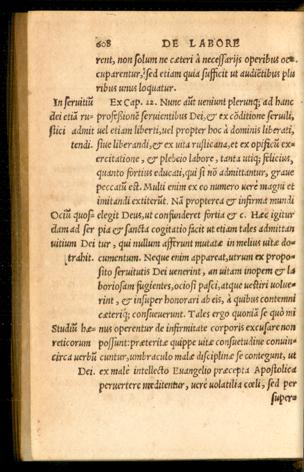 608 DE LABORE
rent, non solum ne cæteri à necessarijs operibus oc-
cuparentur, sed etiam quia sufficit ut audiētibus plu
ribus unus loquatur.
In seruitiū Ex Cap. 22. Nunc aūt ueniunt plerunq; ad hanc
dei etiā ru- professionē seruientium Dei, & ex cōditione seruili,
stici admit uel etiam liberti, uel propter hoc à dominis liberati,
tendi. siue liberandi, & ex uita rusticana, et ex opificū ex-
ercitatione, & plebeio labore, tanto utiq; felicius,
quanto fortius educati, qui si nō admittantur, graue
peccatū est. Multi enim ex eo numero uerè magni et
imitandi extiterūt. Nā propterea & infirma mundi
Ociū quos- elegit Deus, ut confunderet fortia & c. Hæc igitur
dam ad ser pia & sancta cogitatio facit ut etiam tales admittan
uitium Dei tur, qui nullum afferunt mutatæ in melius uitæ do-
trahit. cumentum. Neque enim appareat, utrum ex propo-
sito seruitutis Dei uenerint, an uitam inopem & la
boriosam fugientes, ociosi pasci, atque uestiri uolue-
rint, & insuper honorari ab eis, à quibus contemni
cæteriq; consueuerunt. Tales ergo quoniā se quo mi
Studiū hæ- nus operentur de infirmitate corporis excusare non
reticorum possunt: præteritæ quippe uitæ consuetudine conuin-
circa uerbū cuntur, umbraculo malæ disciplinæ se contegunt, ut
Dei. ex malè intellecto Euangelio præcepta Apostolica
peruertere meditentur, uerè uolatilia cœli, sed per
super-